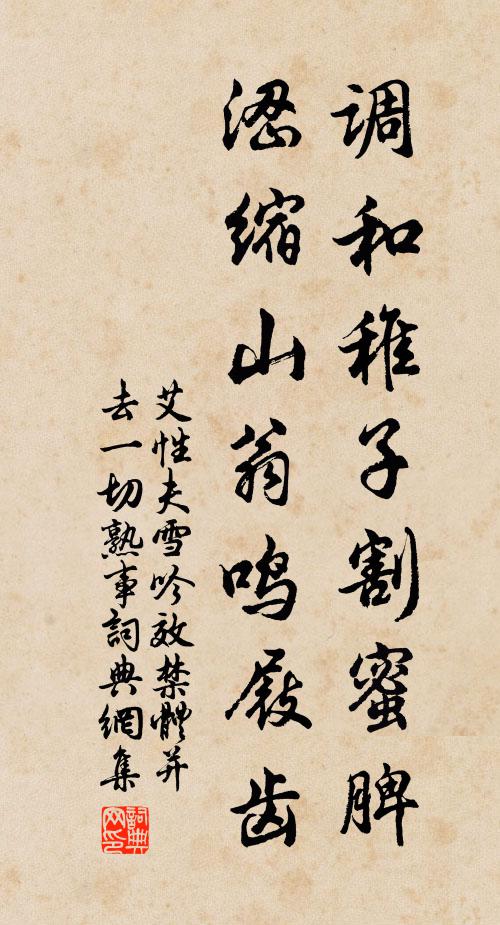 调和稚子割蜜脾
涩缩山翁鸣屐齿
艾性夫雪吟效禁體并
去一切熟事詞典網集
詞典网印